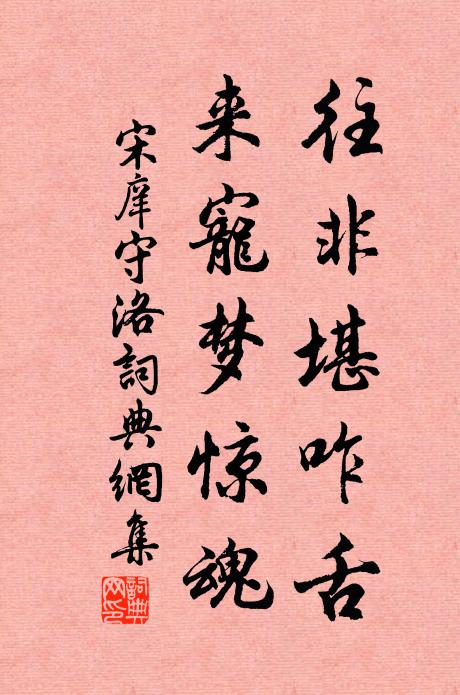 往非堪咋舌
来寵梦惊魂
宋庠守洛詞典網集
詞典网印